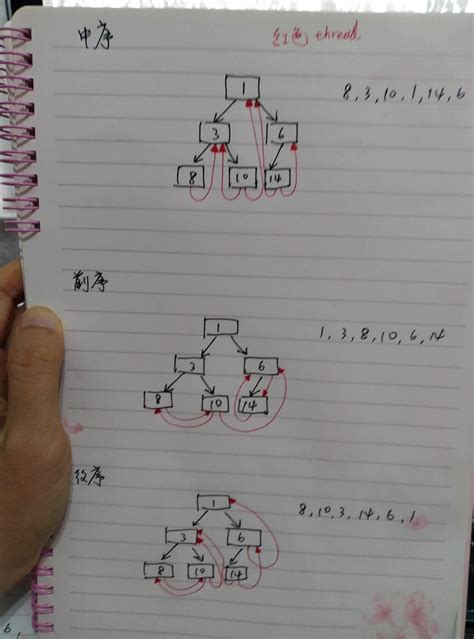 中序 红色 thread
8, 3, 10, 1, 14, 6
1
3 6
8 10 14
前序
1, 3, 8, 10, 6, 14
1
3 6
8 10 14
后序
8, 10, 3, 14, 6, 1
1
3 6
8 10 14
6,